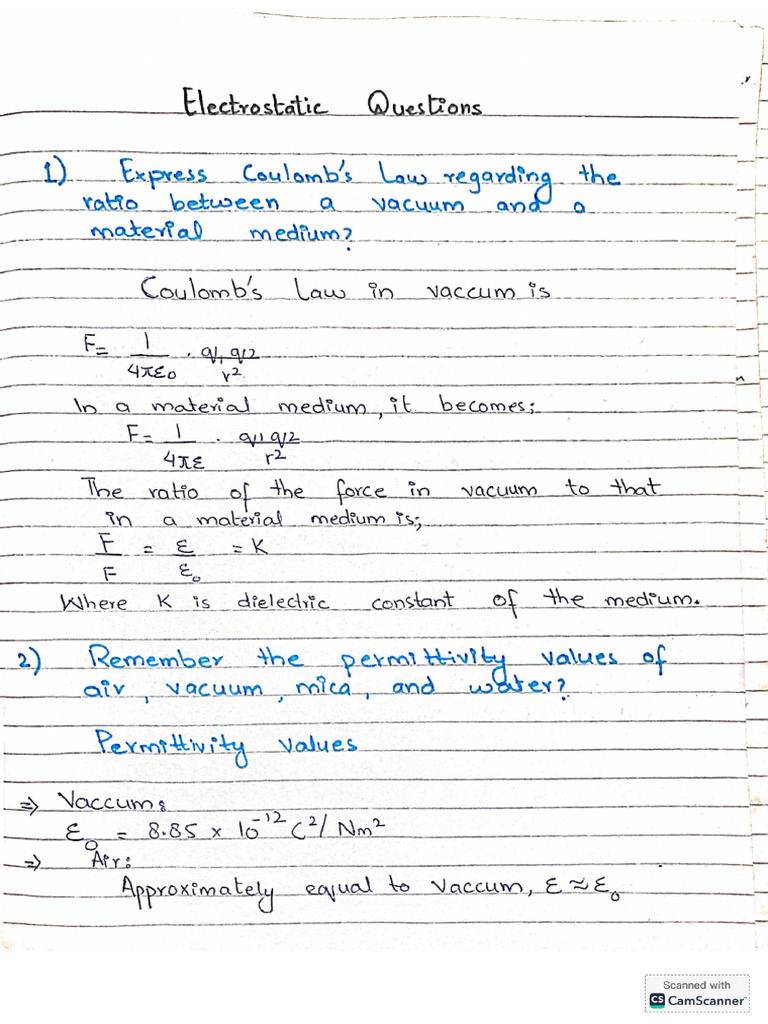 Electrostatic Questions
1) Express Coulomb's Law regarding the
ratio between a vacuum and a
material medium?
Coulomb's Law in vaccum is
F= 1/4πε₀ . q₁ q₂/r²
In a material medium, it becomes;
F= 1/4πε . q₁ q₂/r²
The ratio of the force in vacuum to that
in a material medium is;
F/F = ε/ε₀ = K
Where K is dielectric constant of the medium.
2) Remember the permittivity values of
air, vacuum, mica, and water?
Permittivity values
⇒ Vaccum:
ε₀ = 8.85 × 10⁻¹² C²/Nm²
⇒ Air:
Approximately equal to vaccum, ε ≈ ε₀
Scanned with
CS CamScanner